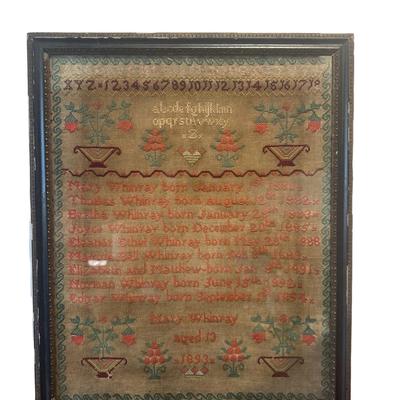 XYZ 1 2 3 4 5 6 7 8 9 10 11 12 13 14 15 16 17 18
abcdefghijklmn
opqrstuvwxy
z
Mary Whinray born January
Thomas Whinray born August 12th 1882
Bertha Whinray born January 1883
Joyce Whinray born December 20th 1885
Eleanor Ethel Whinray born May 28th 1888
Whinray born
Elizabeth and Matthew born 1891
Norman Whinray born June 1892
Edgar Whinray born September
Mary Whinray
aged 13
1893